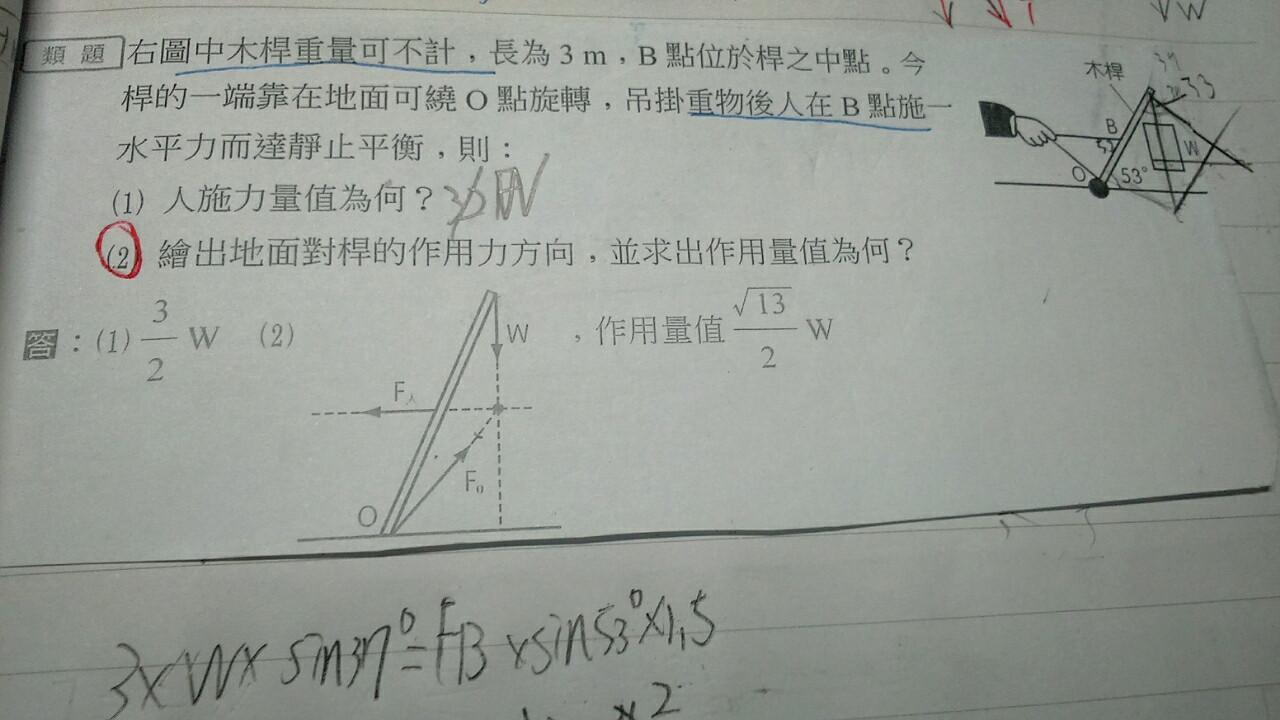 W
類題 右圖中木桿重量可不計，長為 3 m，B 點位於桿之中點。今
桿的一端靠在地面可繞 O 點旋轉，吊掛重物後人在 B 點施一
水平力而達靜止平衡，則：
(1) 人施力量值為何？
(2) 繪出地面對桿的作用力方向，並求出作用量值為何？
木桿
B
W
O
53°
答：(1) 3/2 W (2)
，作用量值 √13/2 W
W
F人
F0
O
3×W×sin37°=FB×sin53°×1,5
×2